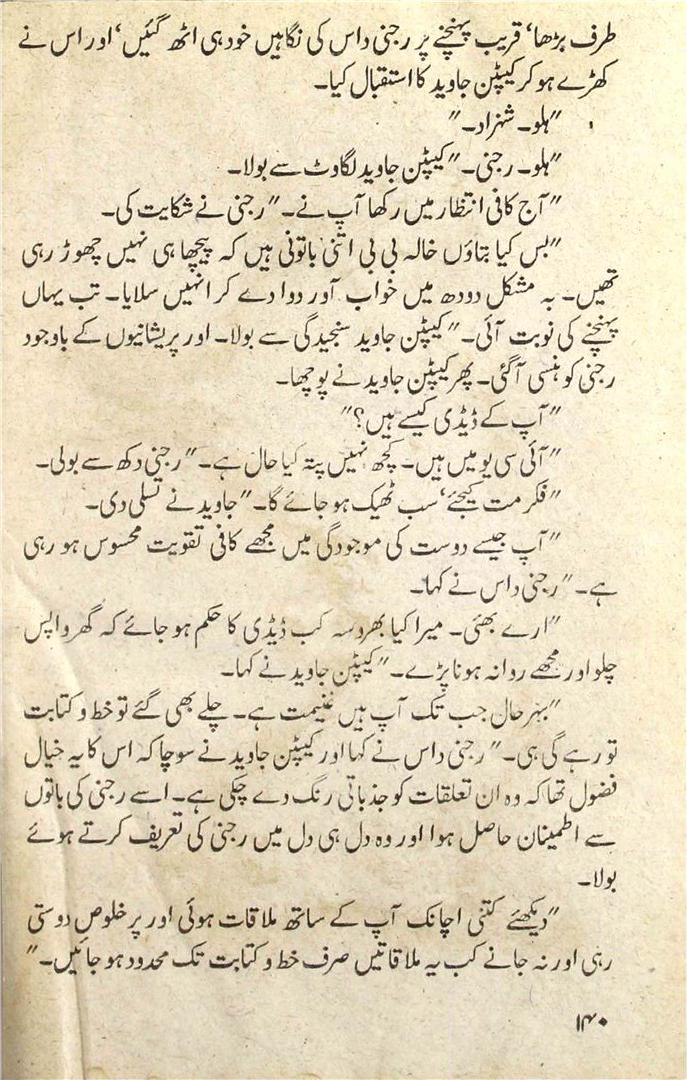 طرف بڑھا، قریب پہنچنے پر رجنی داس کی نگاہیں خود ہی اٹھ گئیں، اور اس نے
کھڑے ہو کر کیپٹن جاوید کا استقبال کیا۔
"ہلو۔ شہزاد۔"
"ہلو۔ رجنی۔" کیپٹن جاوید لگاوٹ سے بولا۔
"آج کافی انتظار میں رکھا آپ نے۔" رجنی نے شکایت کی۔
"بس کیا بتاؤں خالہ بی بی اتنی باتونی ہیں کہ پیچھا ہی نہیں چھوڑ رہی
تھیں۔ بہ مشکل دودھ میں خواب آور دوا دے کر انہیں سلایا۔ تب یہاں
پہنچنے کی نوبت آئی۔" کیپٹن جاوید سنجیدگی سے بولا۔ اور پریشانیوں کے باوجود
رجنی کو ہنسی آ گئی۔ پھر کیپٹن جاوید نے پوچھا۔
"آپ کے ڈیڈی کیسے ہیں؟"
"آئی سی یو میں ہیں۔ کچھ نہیں پتہ کیا حال ہے۔" رجنی دکھ سے بولی۔
"فکر مت کیجئے، سب ٹھیک ہو جائے گا۔" جاوید نے تسلی دی۔
"آپ جیسے دوست کی موجودگی میں مجھے کافی تقویت محسوس ہو رہی
ہے۔" رجنی داس نے کہا۔
"ارے بھئی۔ میرا کیا بھروسہ کب ڈیڈی کا حکم ہو جائے کہ گھر واپس
چلو اور مجھے روانہ ہونا پڑے۔" کیپٹن جاوید نے کہا۔
"بہرحال جب تک آپ ہیں غنیمت ہے۔ چلے بھی گئے تو خط و کتابت
تو رہے گی ہی۔" رجنی داس نے کہا اور کیپٹن جاوید نے سوچا کہ اس کا یہ خیال
فضول تھا کہ وہ ان تعلقات کو جذباتی رنگ دے چکی ہے۔ اسے رجنی کی باتوں
سے اطمینان حاصل ہوا اور وہ دل ہی دل میں رجنی کی تعریف کرتے ہوئے
بولا۔
"دیکھئے کتنی اچانک آپ کے ساتھ ملاقات ہوئی اور پر خلوص دوستی
رہی اور نہ جانے کب یہ ملاقاتیں صرف خط و کتابت تک محدود ہو جائیں۔"
۱۴۰